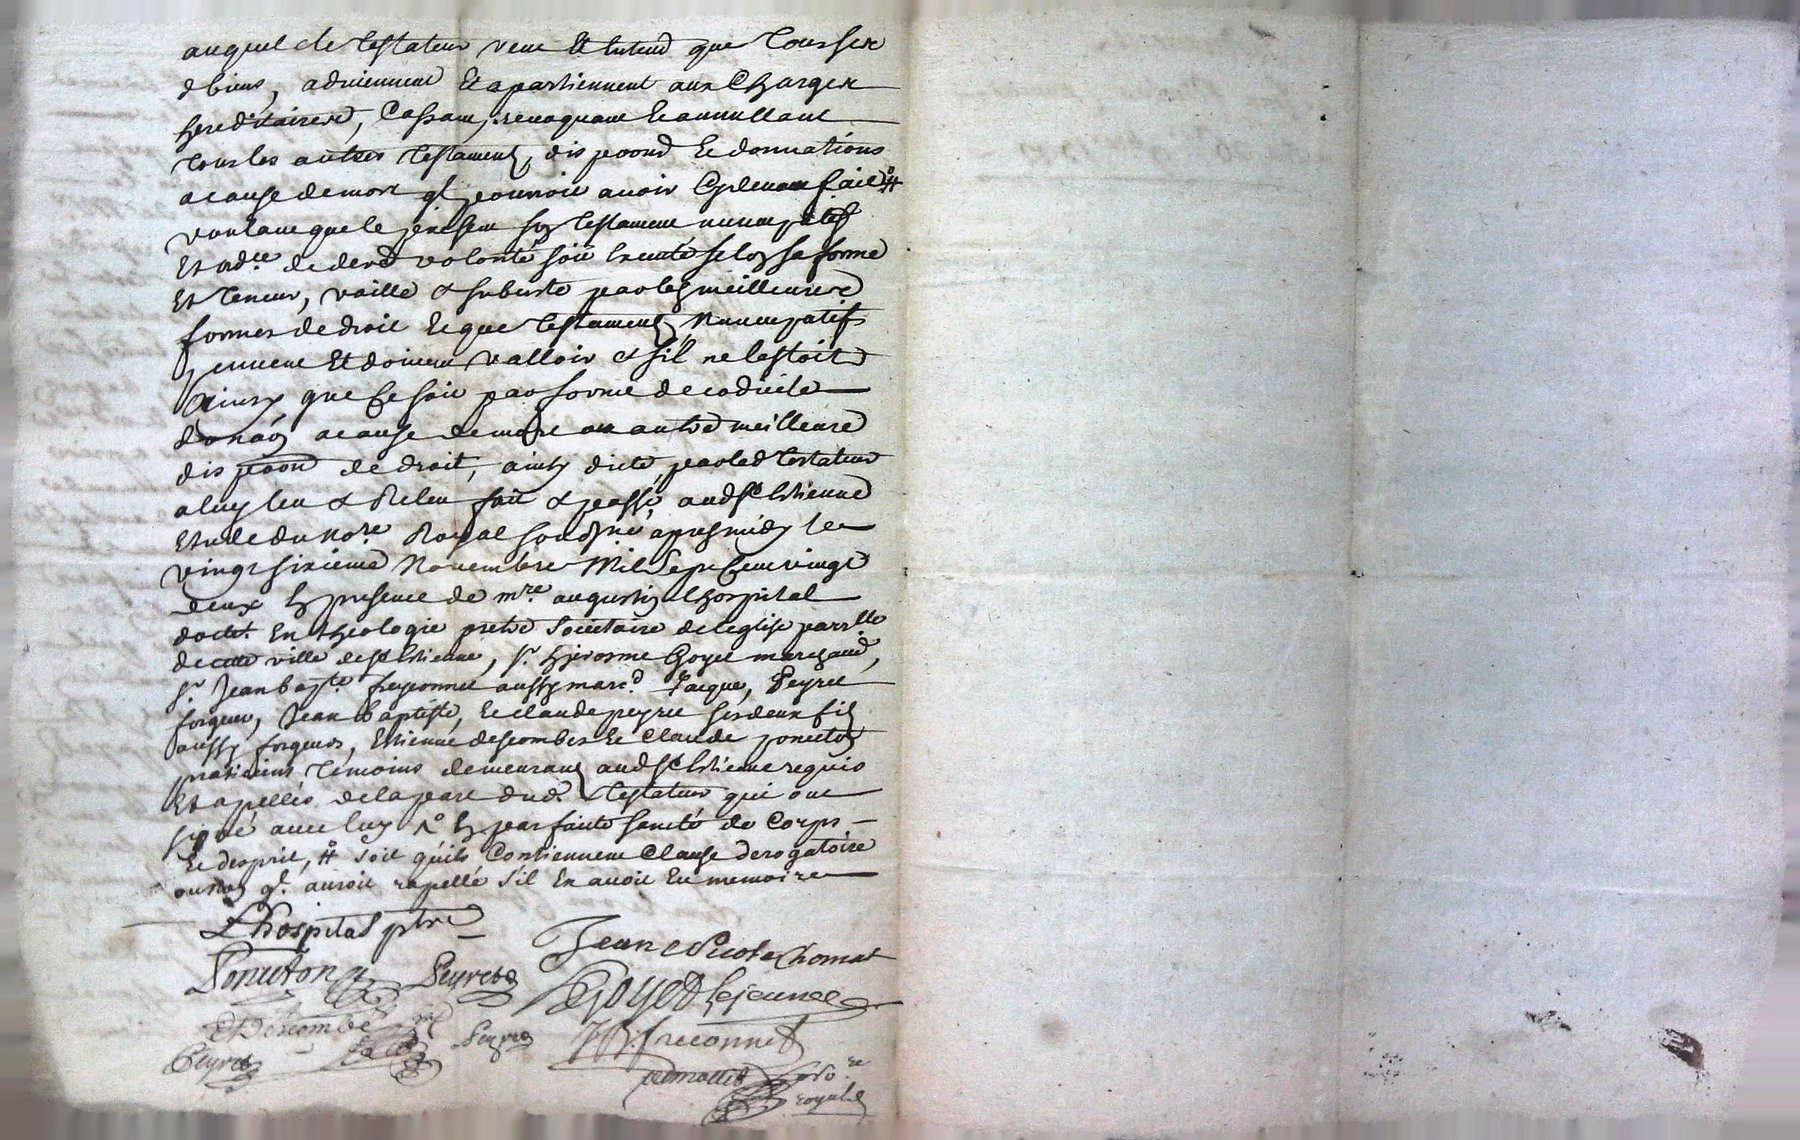 auquel le testateur veut et entend que tous ses
d biens, adviennent et apartiennent aux charges
hereditaires, cassant, revoquant et annullant
tous les autres testaments, dispoons et donnations
a cause de mort ql pourroit avoir cy devant fait #
voulant que le present son testament nuncupatif
et ordce de derre volonté soit executé selon sa forme
et teneur, vaille & subciste par les meilleures
formes de droit et que testaments nuncupatifs
peuvent et doivent valloir & sil ne lestoit
ainsy que ce soit par forme de codicile
donaon a cause de mort ou autre meilleure
dispoon de droit, ainsy dicté par led testateur
a luy leu & releu fait & passé aud St Estienne
etude du nore royal soussné apres midy le
vingt sixieme novembre mil sept cent vingt
deux en presence de mre augustin lhospital
doctr en theologie pretre societaire de leglise parrlle
de cette ville de St Estienne, sr hierosme Goyet marchand,
sr Jean bapte freconnet aussy marcd Jacque, Peyret
forgeur, Jean baptiste, et claude peyret ses deux fils
aussy forgeurs, Estienne descombes et Claude ponceton
praticiens temoins demeurans aud St Estienne requis
et apellés de la part dud testateur qui ont
signé avec luy en parfaite santé de corps
et desprit, # soit quils contiennent clause derogatoire
ou non ql auroit rapellé sil en avoit eu memoire
Lhospital ptre
Jean Nicolas Chomat
Ponceton Peyret
Goyet le jeune
E Descombes
Peyret
JB freconnet
Peyret
royal